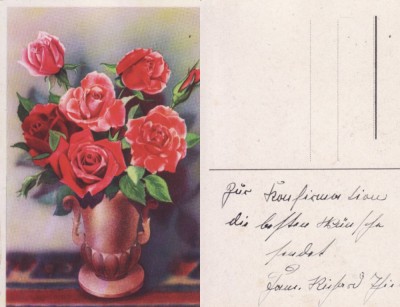 Zur Konfirmation
die besten Wünsche
sendet
Fam. Richard